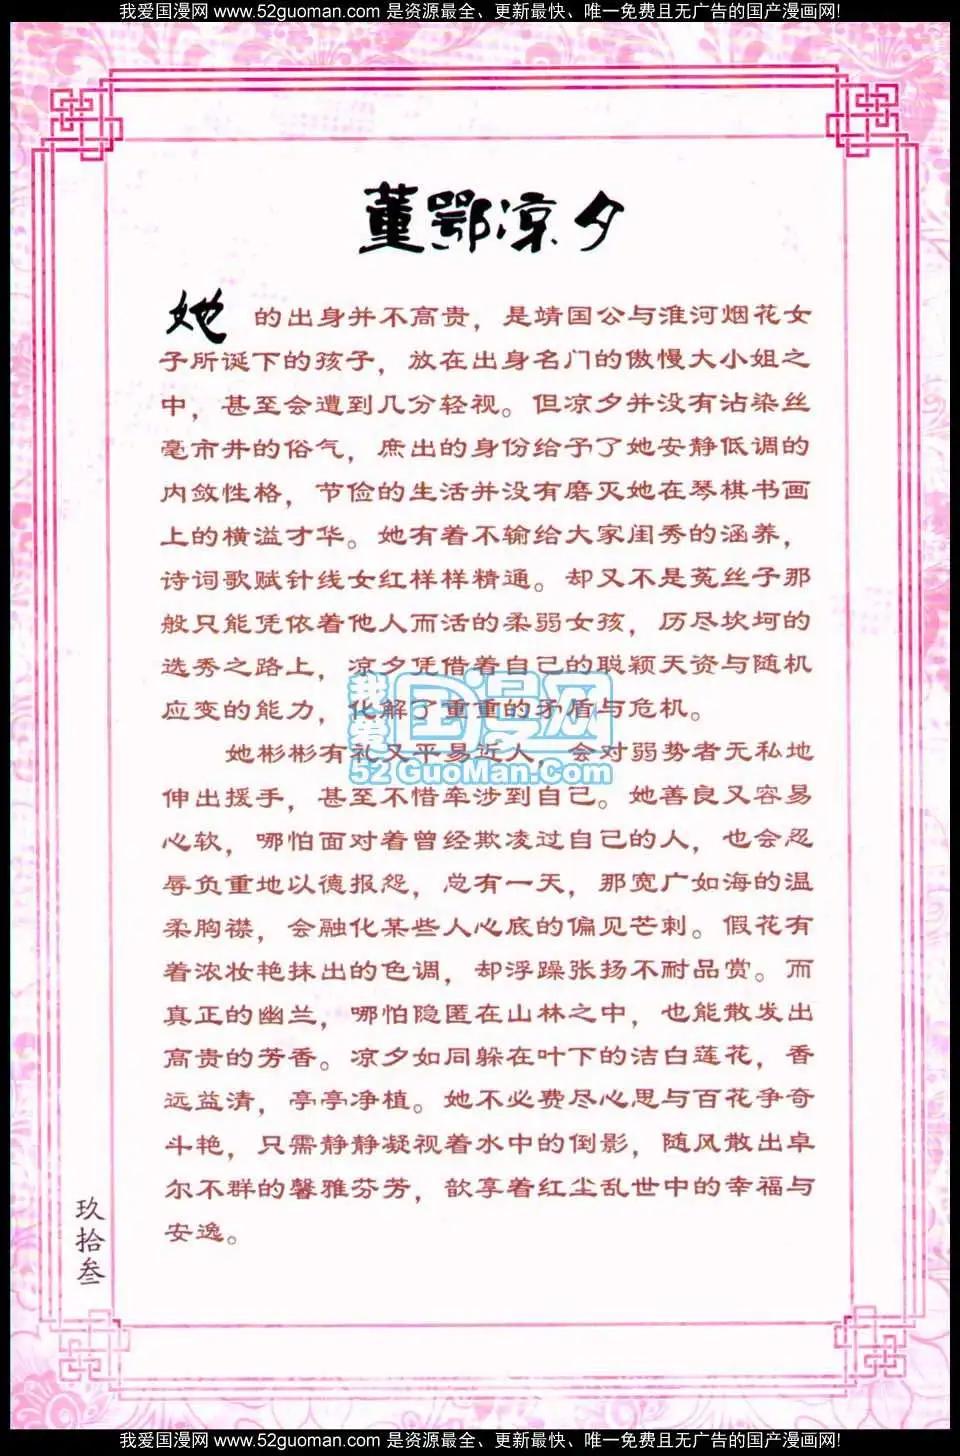 我爱国漫网 www.52guoman.com 是资源最全、更新最快、唯一免费且无广告的国产漫画网!
董鄂凉夕
她的出身并不高贵，是靖国公与淮河烟花女
子所诞下的孩子，放在出身名门的傲慢大小姐之
中，甚至会遭到几分轻视。但凉夕并没有沾染丝
毫市井的俗气，庶出的身份给予了她安静低调的
内敛性格，节俭的生活并没有磨灭她在琴棋书画
上的横溢才华。她有着不输给大家闺秀的涵养，
诗词歌赋针线女红样样精通。却又不是菟丝子那
般只能凭依着他人而活的柔弱女孩，历尽坎坷的
选秀之路上，凉夕凭借着自己的聪颖天资与随机
应变的能力，化解了重重的矛盾与危机。
她彬彬有礼又平易近人，会对弱势者无私地
伸出援手，甚至不惜牵涉到自己。她善良又容易
心软，哪怕面对着曾经欺凌过自己的人，也会忍
辱负重地以德报怨，总有一天，那宽广如海的温
柔胸襟，会融化某些人心底的偏见芒刺。假花有
着浓妆艳抹出的色调，却浮躁张扬不耐品赏。而
真正的幽兰，哪怕隐匿在山林之中，也能散发出
高贵的芳香。凉夕如同躲在叶下的洁白莲花，香
远益清，亭亭净植。她不必费尽心思与百花争奇
斗艳，只需静静凝视着水中的倒影，随风散出卓
尔不群的馨雅芬芳，歆享着红尘乱世中的幸福与
安逸。
我爱国漫网
52GuoMan.Com
玖拾叁
我爱国漫网 www.52guoman.com 是资源最全、更新最快、唯一免费且无广告的国产漫画网!